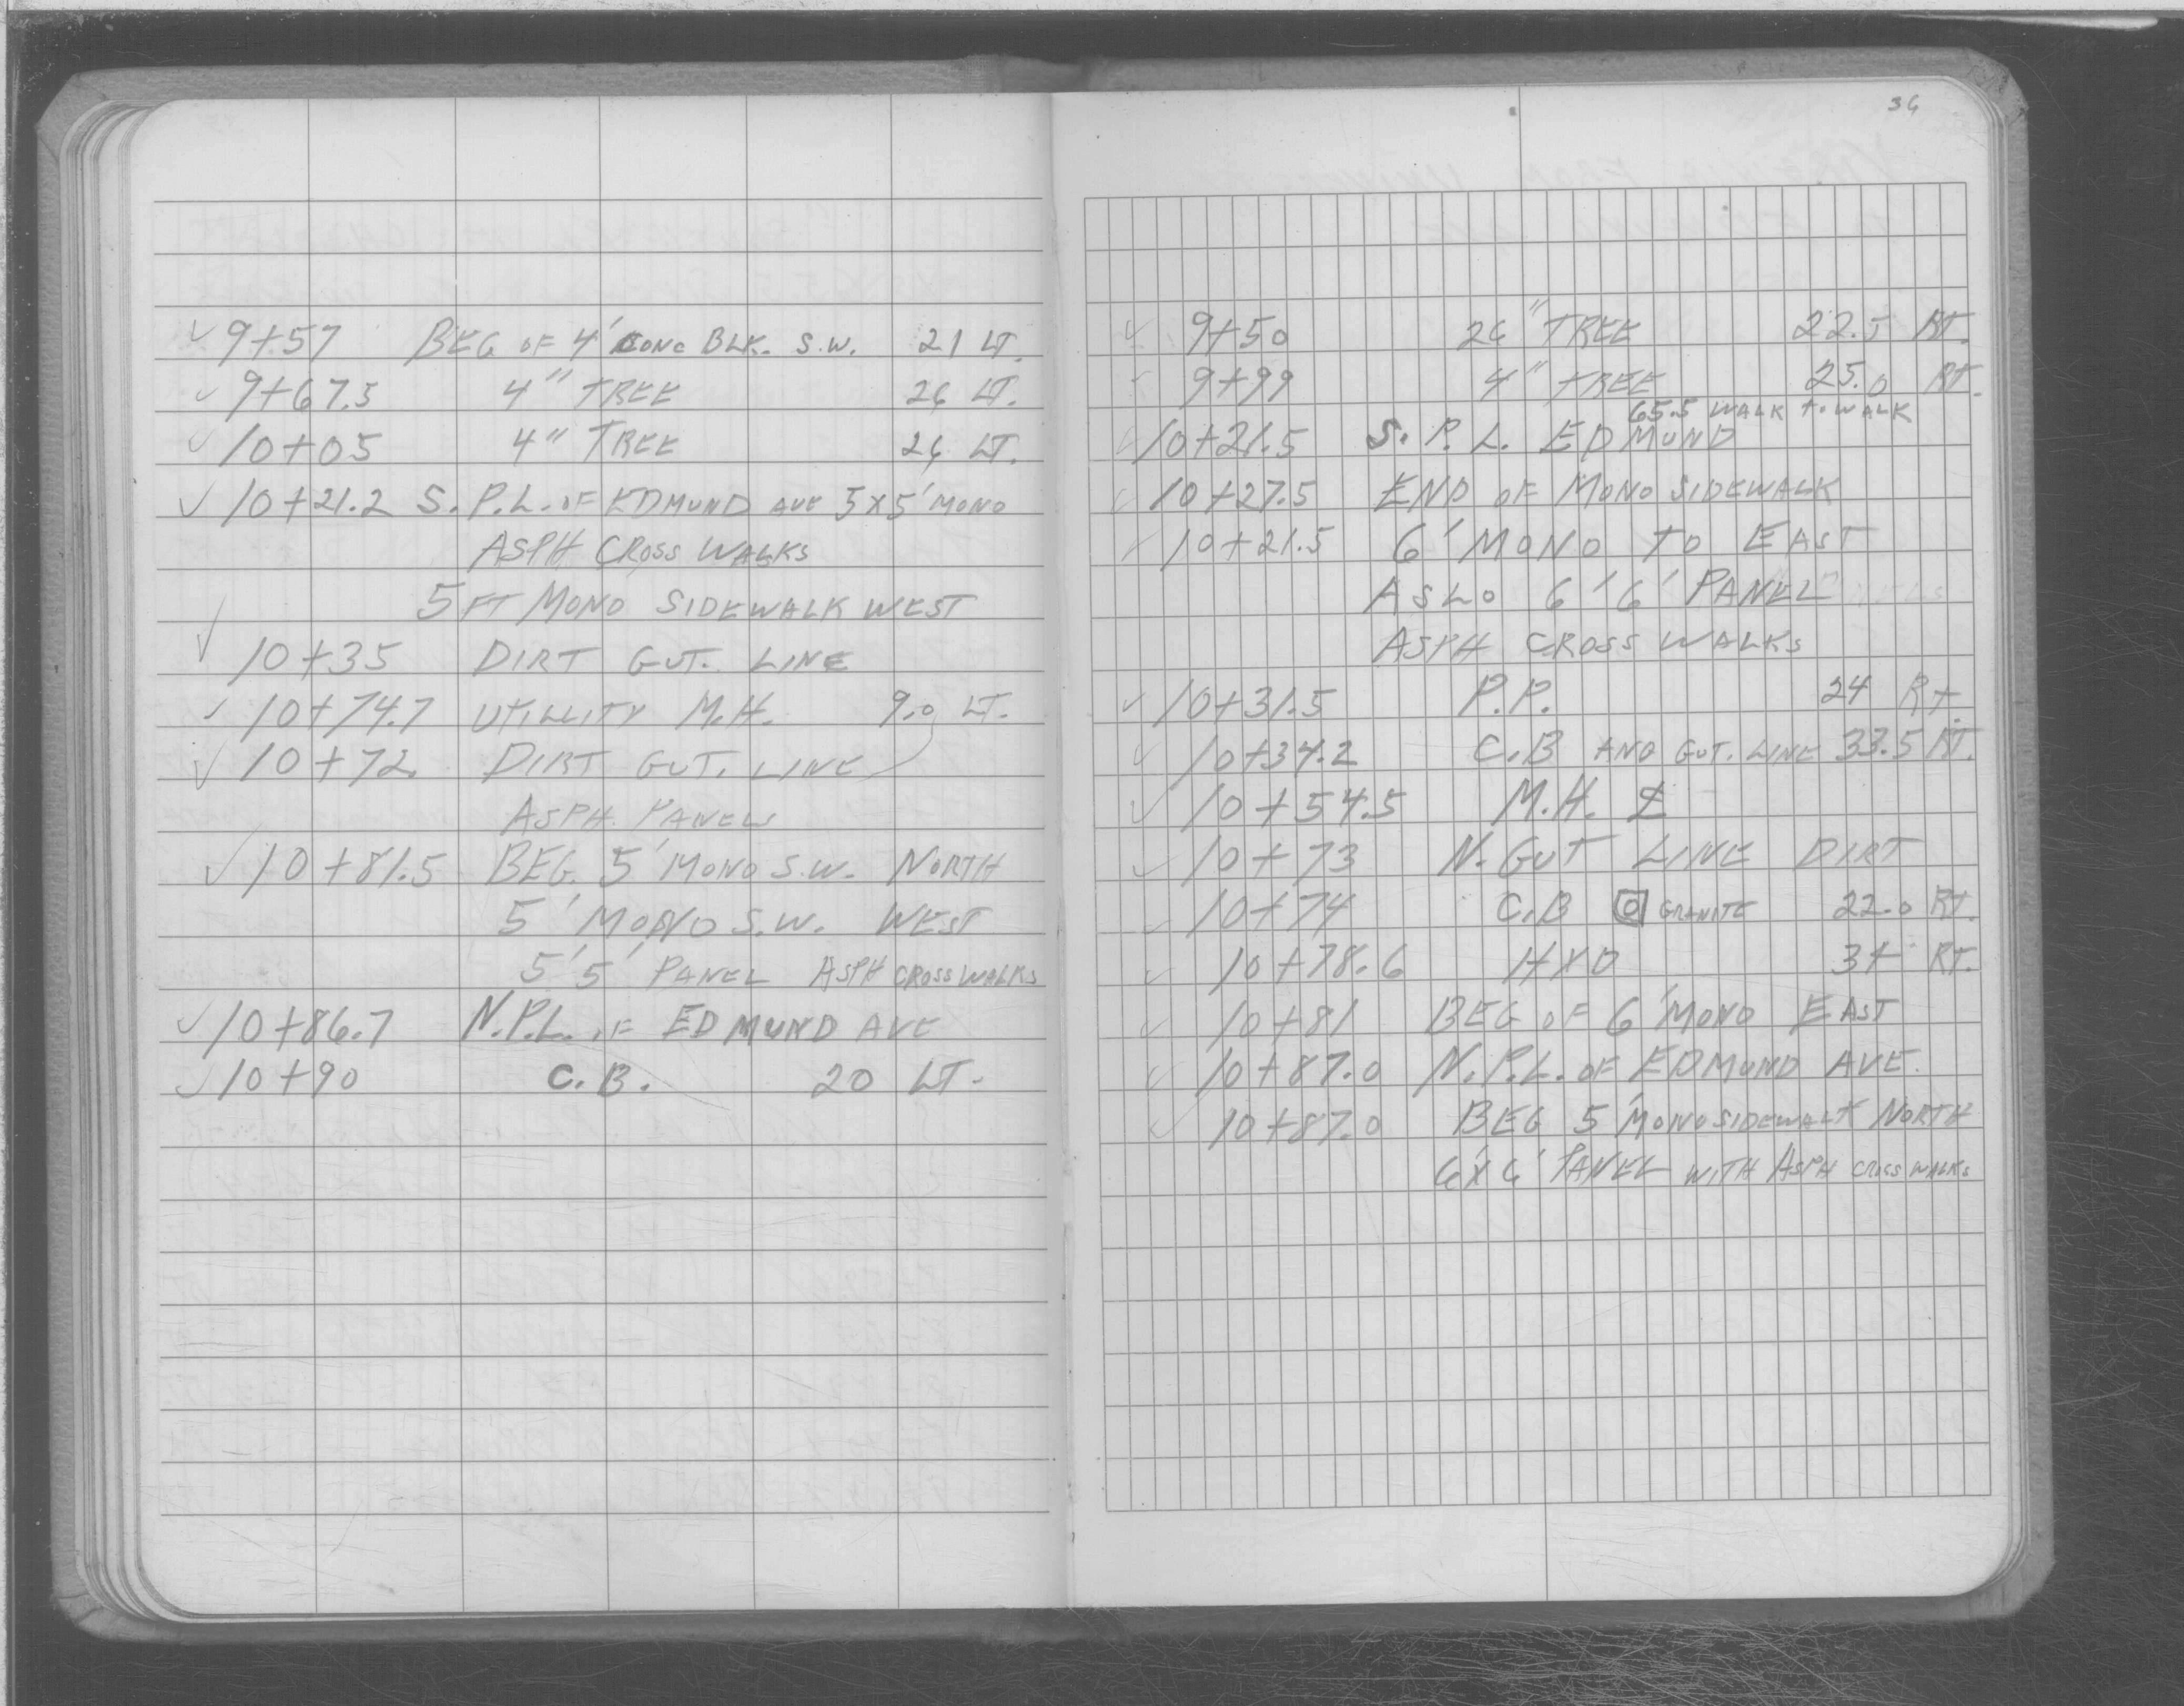 ✓ 9+57 BEG OF 4' CONC BLK. S.W. 21 LT.
✓ 9+67.5 4" TREE 26 LT.
✓ 10+05 4" TREE 26 LT.
✓ 10+21.2 S. P.L. OF EDMUND AVE 5X5' MONO
ASPH CROSS WALKS
5 FT MONO SIDEWALK WEST
✓ 10+35 DIRT GUT. LINE
✓ 10+74.7 UTILLITY M.H. 9.0 LT.
✓ 10+72 DIRT GUT. LINE
ASPH. PANELS
✓ 10+81.5 BEG. 5' MONO S.W. NORTH
5' MONO S.W. WEST
5' 5' PANEL ASPH CROSS WALKS
✓ 10+86.7 N.P.L. OF EDMUND AVE
✓ 10+90 C.B. 20 LT.
36
✓ 9+50 26" TREE 22.5 RT.
✓ 9+99 4" TREE 25.0 RT.
65.5 WALK TO WALK
✓ 10+21.5 S. P. L. EDMUND
✓ 10+27.5 END OF MONO SIDEWALK
✓ 10+21.5 6' MONO TO EAST
ASLO 6' 6' PANEL
ASPH CROSS WALKS
✓ 10+31.5 P.P. 24 RT.
✓ 10+34.2 C.B AND GUT. LINE 33.5 RT.
✓ 10+54.5 M.H. ℄
✓ 10+73 N. GUT LINE DIRT
✓ 10+74 C.B GRANITE 22.0 RT.
✓ 10+78.6 HYD RT.
✓ 10+81 BEG OF 6' MONO EAST
✓ 10+87.0 N.P.L. OF EDMUND AVE.
✓ 10+87.0 BEG 5' MONO SIDEWALK NORTH
6'X6' PANEL WITH ASPH CROSS WALKS